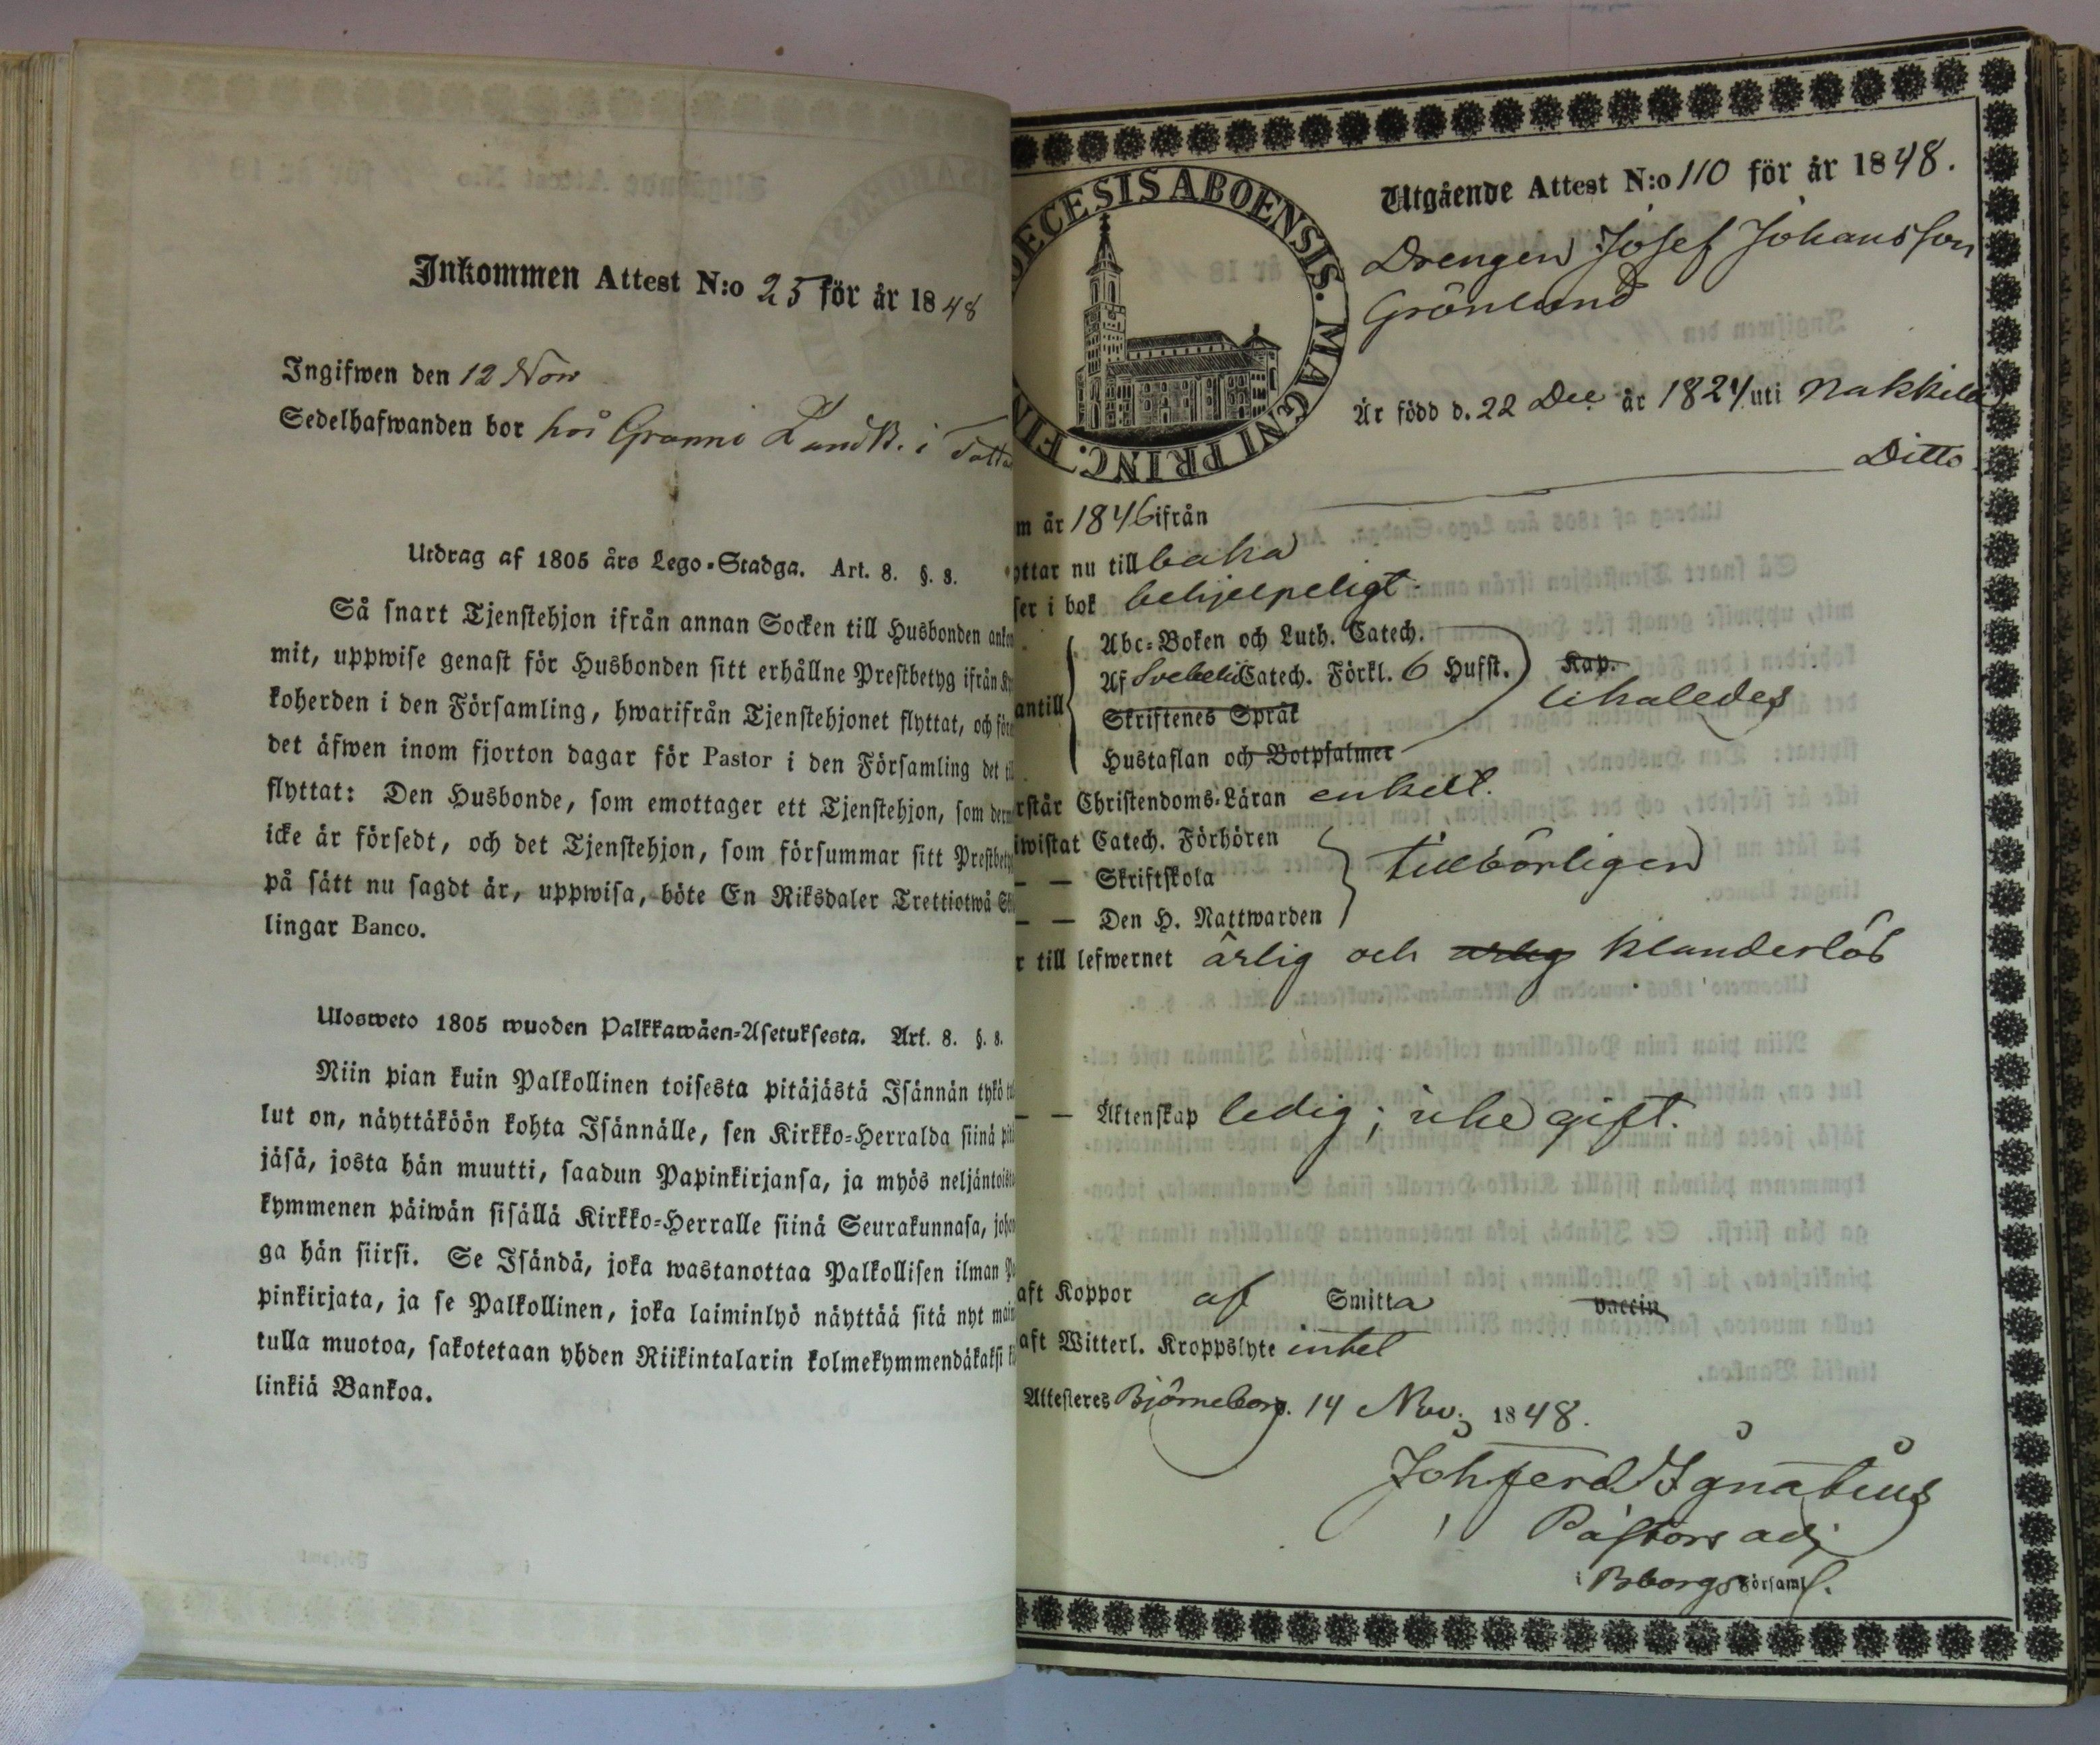 Inkommen Attest N:o 25 för år 1848
Ingifwen den 12 Nov
Sedelhafwanden bor hos Granni Landb. i
Utdrag af 1805 års Lego-Stadga. Art. 8. §. 8.
Så snart Tjenstehjon ifrån annan Socken till Husbonden ankom
mit, uppwise genast för Husbonden sitt erhållne Prestbetyg ifrån Ky
koherden i den Församling, hwarifrån Tjenstehjonet flyttat, och föte
det äfwen inom fjorton dagar för Pastor i den Församling det til
flyttat: Den Husbonde, som emottager ett Tjenstehjon, som derm
icke är försedt, och det Tjenstehjon, som försummar sitt Prestbetyg
på sätt nu sagdt är, uppwisa, böte En Riksdaler Trettiotwå Ski
lingar Banco.
Ulosweto 1805 wuoden Palkkawäen-Asetuksesta. Art. 8. §. 8.
Niin pian kuin Palkollinen toisesta pitäjästä Isännän tykö tul
lut on, näyttäköön kohta Isännälle, sen Kirkko-Herralda siinä pitä
jäsä, josta hän muutti, saadun Papinkirjansa, ja myös neljäntoista
kymmenen päiwän sisällä Kirkko-Herralle siinä Seurakunnasa, johon
ga hän siirsi. Se Isändä, joka wastanottaa Palkollisen ilman Pa
pinkirjata, ja se Palkollinen, joka laiminlyö näyttää sitä nyt main
tulla muotoa, sakotetaan yhden Riikintalarin kolmekymmendäkaksi ki
linkiä Bankoa.
DECESIS ABOENSIS. MAGNI PRINC. FIN
Utgående Attest N:o 110 för år 1848.
Drengen Josef Johansson
Grönlund
Är född d. 22 Dec år 1824 uti Nakkila
Ditto
m år 1846 ifrån
ttar nu till baka
ser i bok behjelpeligt
Abc-Boken och Luth. Catech.
Af Svebelii Catech. Förkl. 6 Hufst. Kap.
antill likaledes
Skriftenes Språk
Hustaflan och Botpsalmer
rstår Christendoms-Läran enkelt.
iwistat Catech. Förhören
— — Skriftskola tillbörligen
— — Den H. Nattwarden
r till lefwernet ärlig och ärlig klanderlös
— — Äktenskap ledig; icke gift.
aft Koppor af Smitta vaccin
aft Witterl. Kroppslyte intet
Attesteres Björneborg. 14 Nov. 1848.
Joh Ferd Ignatius
Pastors adj
i Bborgs Församl.